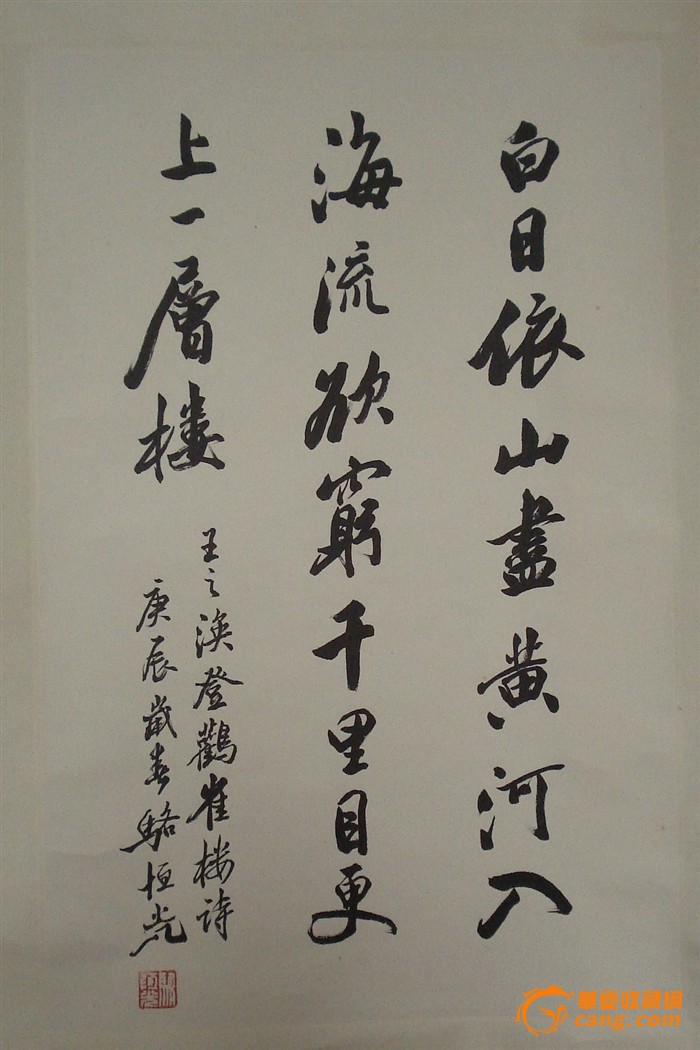 白日依山盡黄河入
海流欲窮千里目更
上一層楼
王之渙登鸛雀楼诗
庚辰歲春駱恒光
華夏收藏網
cang.com